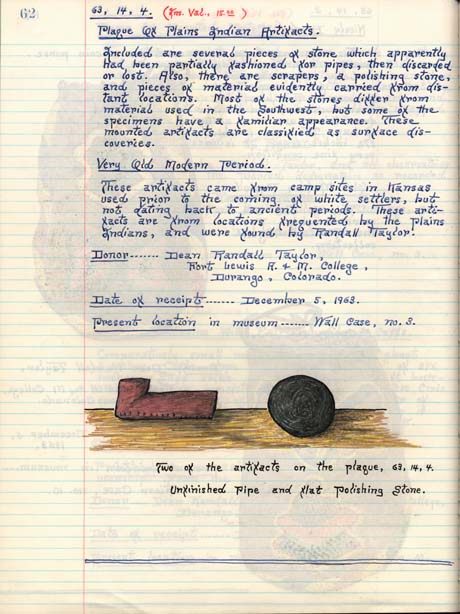 62
63, 14, 4. (Ins. Val., 15.00)
Plaque Of Plains Indian Artifacts.
Included are several pieces of stone which apparently
had been partially fashioned for pipes, then discarded
or lost. Also, there are scrapers, a polishing stone,
and pieces of material evidently carried from dis-
tant locations. Most of the stones differ from
material used in the Southwest, but some of the
specimens have a familiar appearance. These
mounted artifacts are classified as surface dis-
coveries.
Very Old Modern Period.
These artifacts came from camp sites in Kansas
used prior to the coming of white settlers, but
not dating back to ancient periods. These arti-
facts are from locations frequented by the Plains
Indians, and were found by Randall Taylor.
Donor ------ Dean Randall Taylor,
Fort Lewis A. & M. College,
Durango, Colorado.
Date of receipt ------- December 5, 1963.
Present location in museum ------- Wall Case, no. 3.
Two of the artifacts on the plaque, 63, 14, 4.
Unfinished Pipe and flat Polishing Stone.